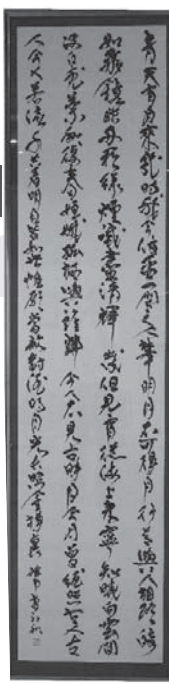 青天有月來幾時我今停杯一問之人攀明月不可得月行卻與人相隨皎
如飛鏡臨丹闕綠煙滅盡清輝發但見宵從海上來寧知曉向雲間
沒白兔搗藥秋復春嫦娥孤棲與誰鄰今人不見古時月今月曾經照古人古
人今人若流水共看明月皆如此惟願當歌對酒時月光長照金樽裏